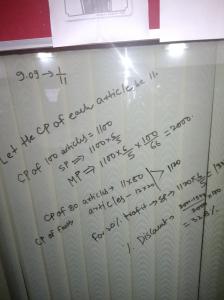 9.09 → 1/11
Let the CP of each article be 11.
CP of 100 articles = 1100
SP ⇒ 1100 × 6/5
MP ⇒ 1100 × 6/5 × 100/66 = 2000.
CP of 80 articles → 11×80
articles → 12×20 > 1120
For 20% Profit → SP → 1120 × 6/5
% Discount →